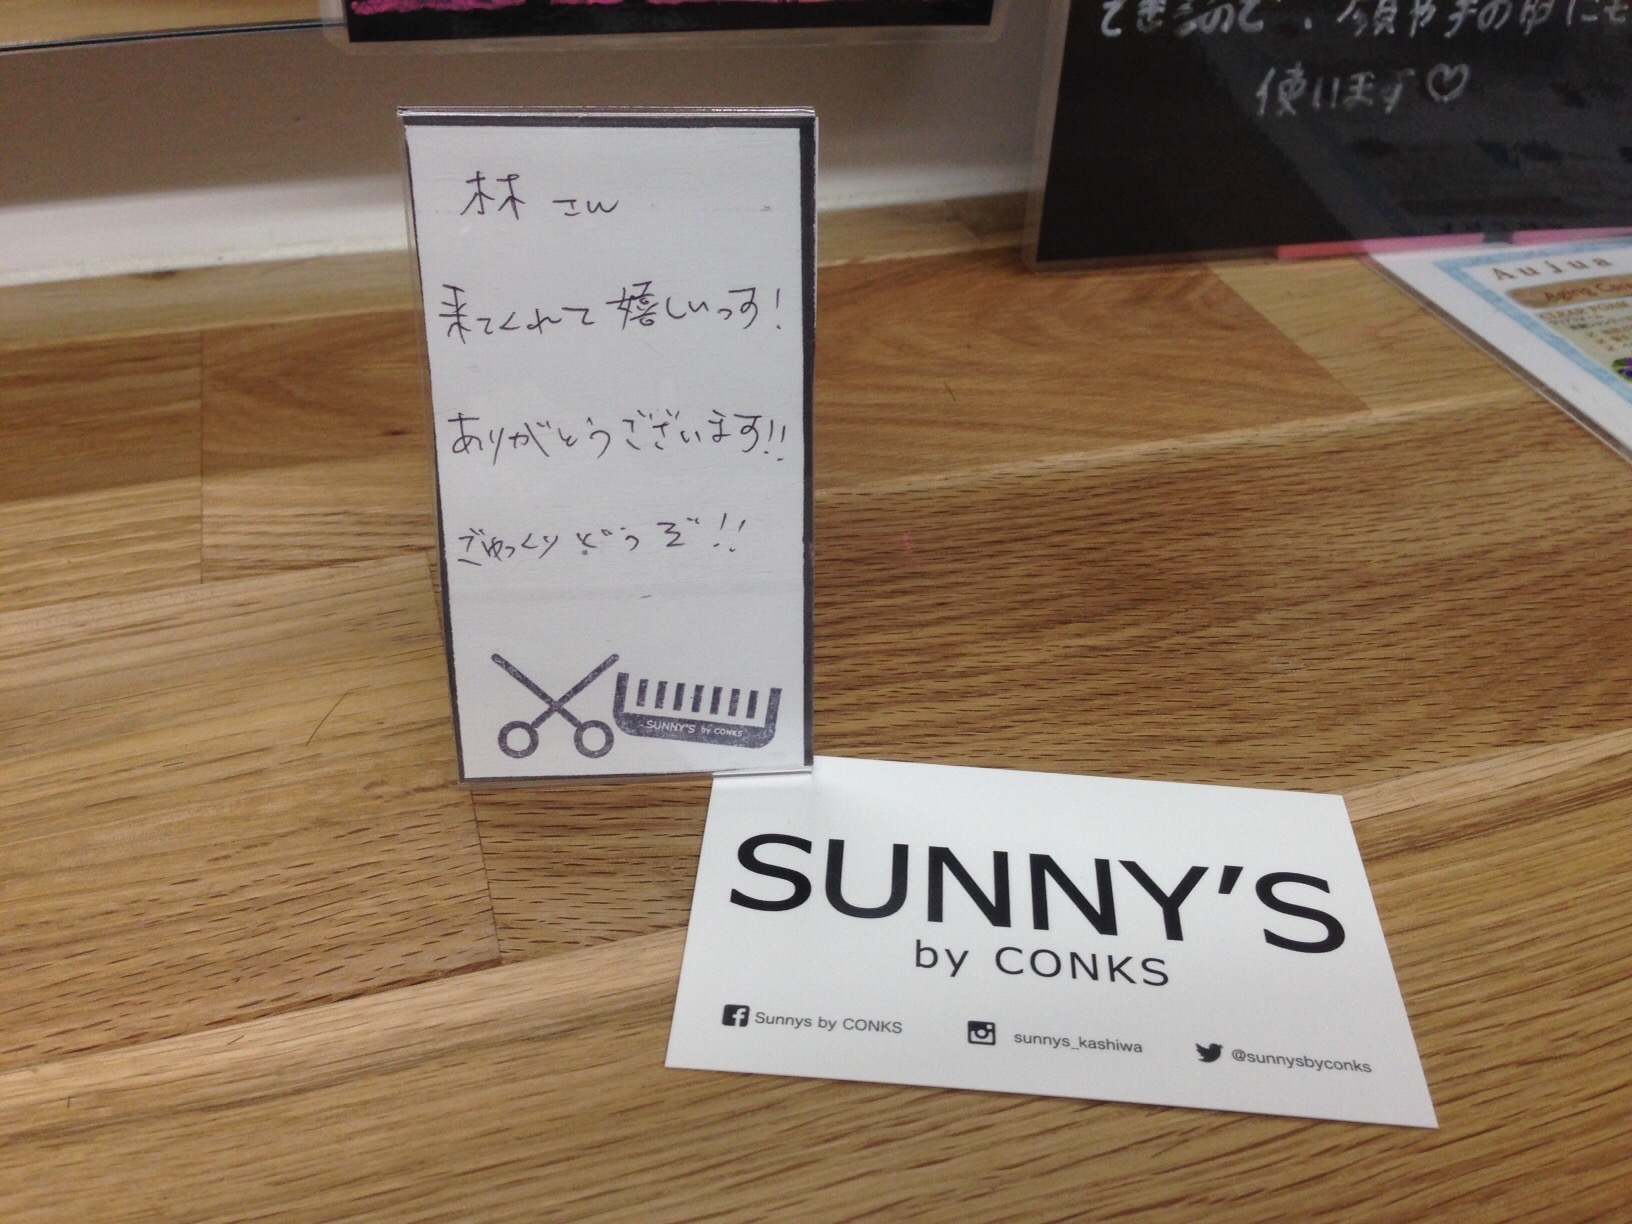 できるので、顔や手の甲にも
使います♡
林 さん
来てくれて 嬉しいっす!
ありがとうございます!!
ごゆっくり どうぞ!!
SUNNY'S by CONKS
Aujua
Aging Care
SUNNY'S
by CONKS
Sunnys by CONKS
sunnys_kashiwa
@sunnysbyconks